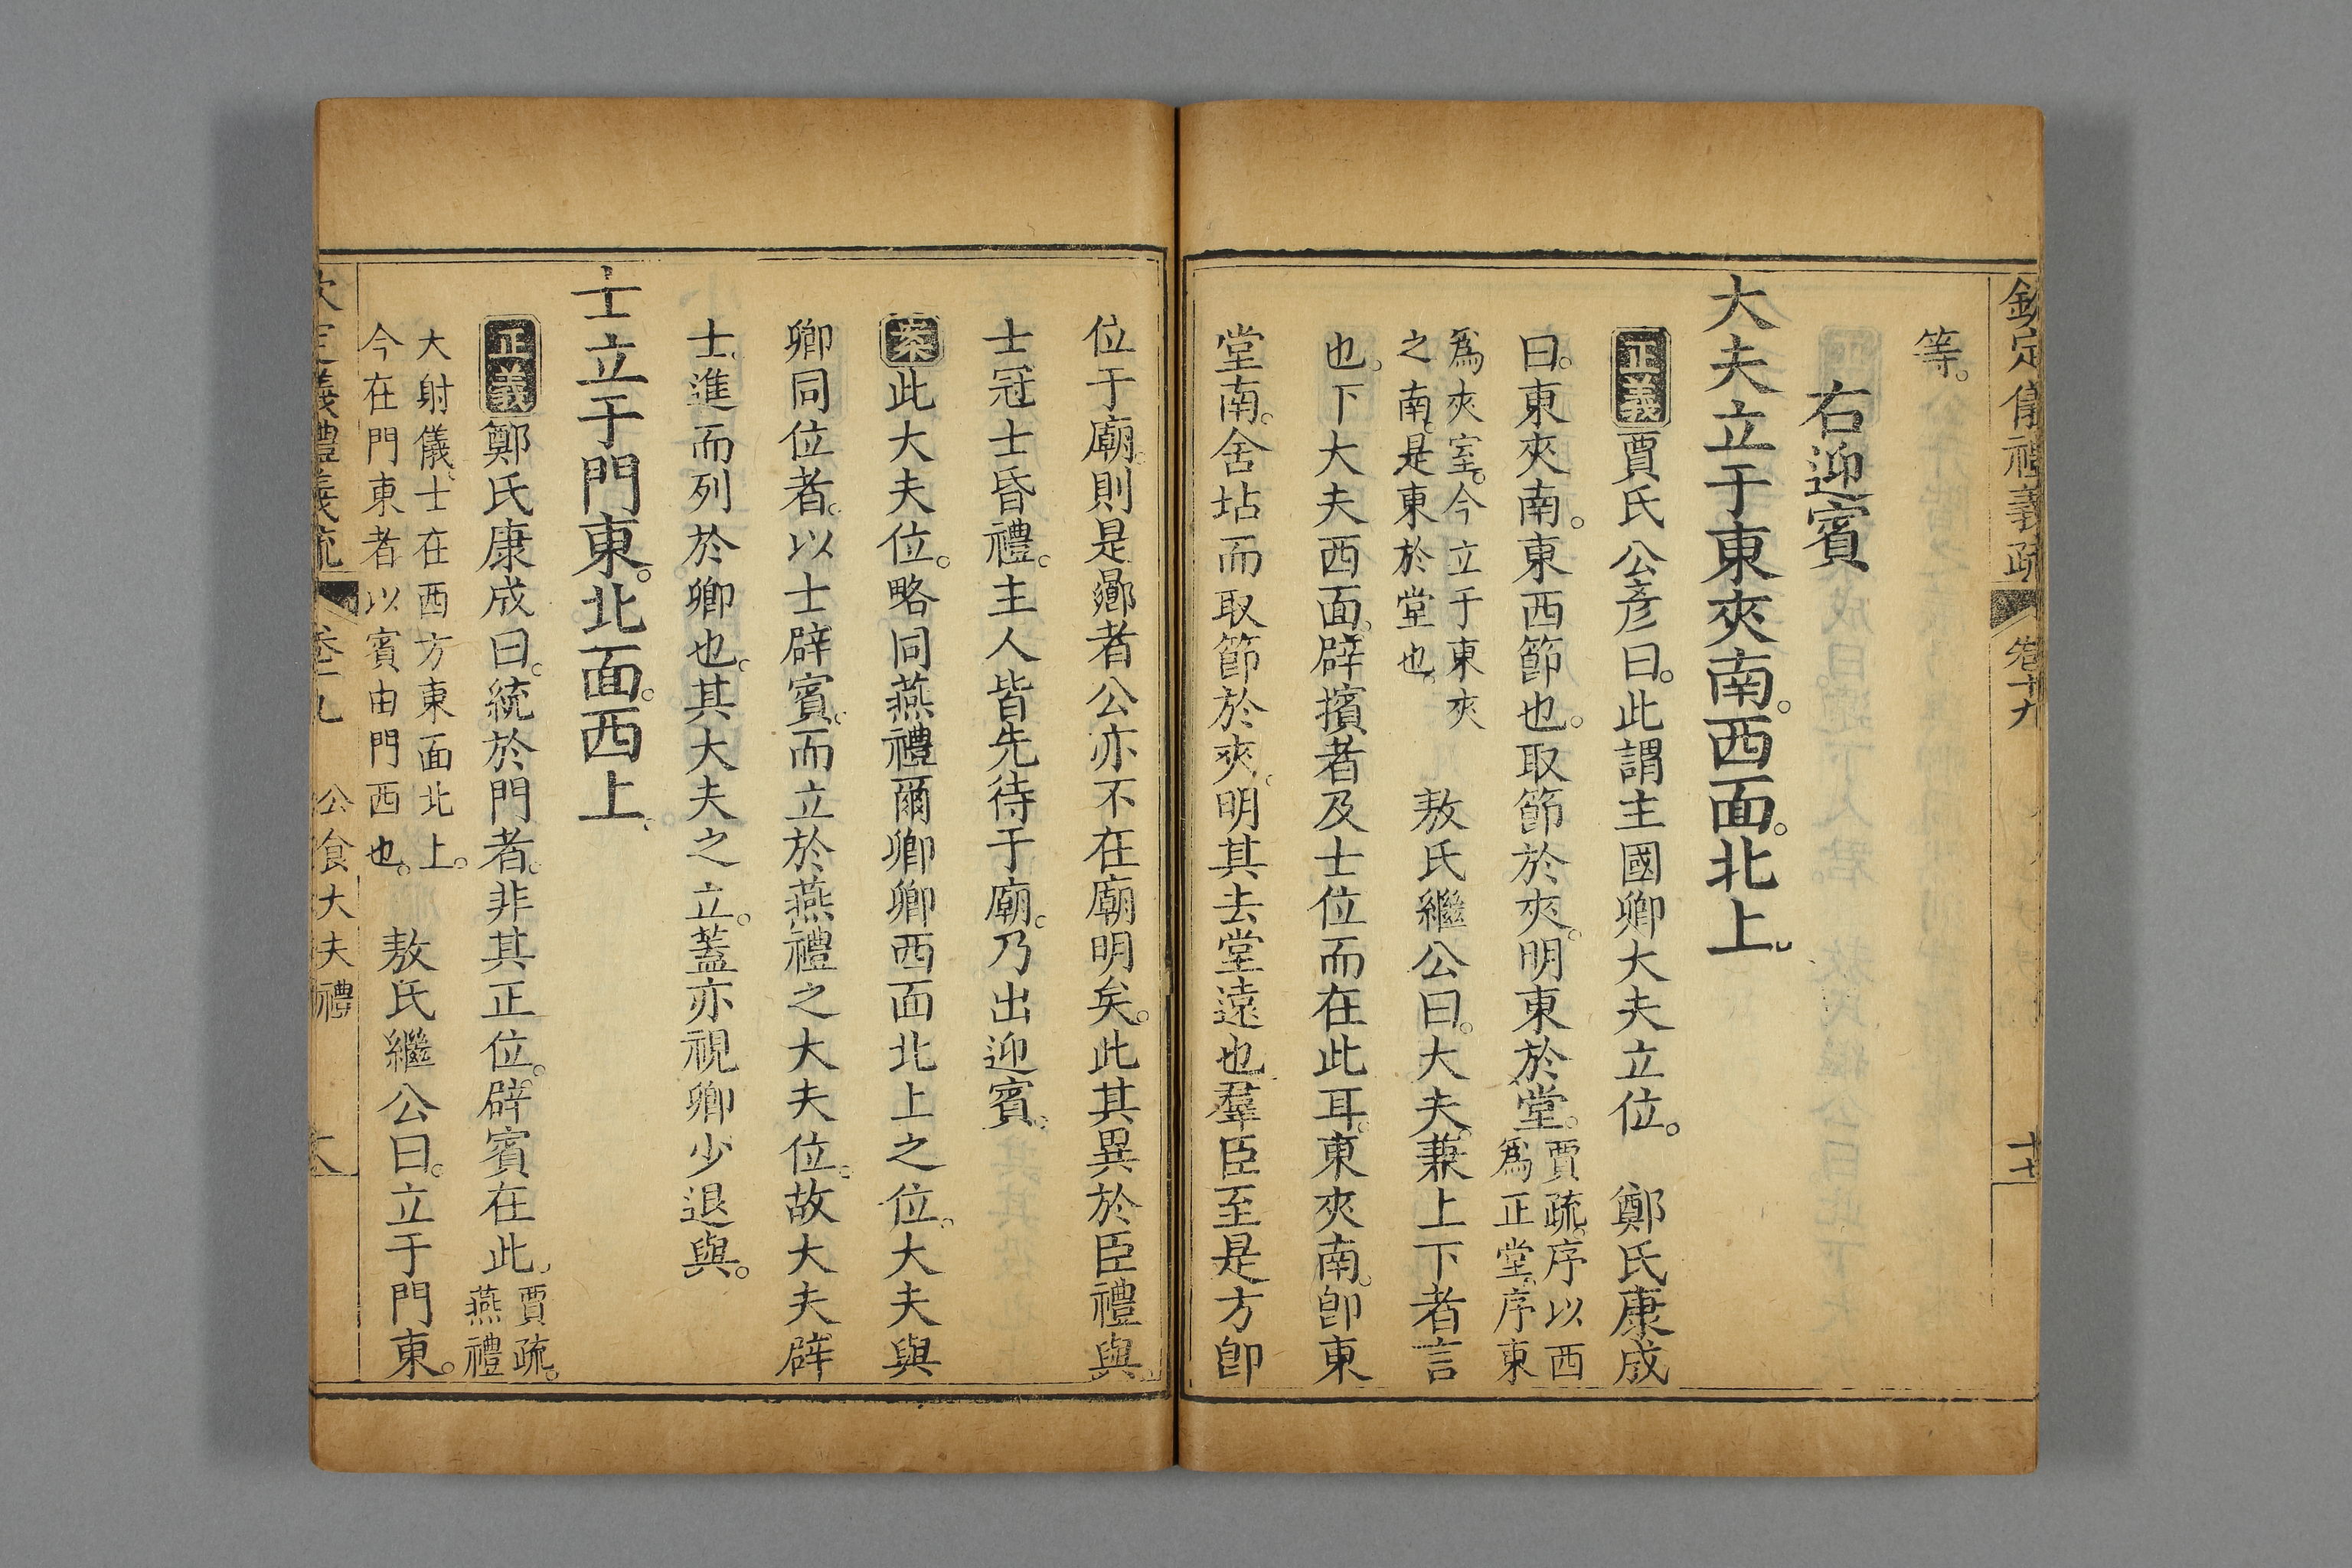 欽定儀禮義疏 卷十九 十七
等。
右迎賓
大夫立于東夾南。西面。北上。
正義賈氏公彥曰。此謂主國卿大夫立位。 鄭氏康成
曰。東夾南。東西節也。取節於夾。明東於堂。賈疏。序以西
爲正堂。序東
爲夾室。今立于東夾
之南。是東於堂也。 敖氏繼公曰。大夫。兼上下者言
也。下大夫西面。辟擯者及士位而在此耳。東夾南。卽東
堂南。舍坫而取節於夾。明其去堂遠也。羣臣至是方卽
位于廟。則是曏者公亦不在廟明矣。此其異於臣禮與。
士冠士昏禮。主人皆先待于廟。乃出迎賓。
案此大夫位。略同燕禮爾卿卿西面北上之位。大夫與
卿同位者。以士辟賓。而立於燕禮之大夫位。故大夫辟
士、進而列於卿也。其大夫之立。蓋亦視卿少退與。
士立于門東。北面。西上。
正義鄭氏康成曰。統於門者。非其正位。辟賓在此。賈疏。
燕禮
大射儀。士在西方東面北上。
今在門東者以賓由門西也。 敖氏繼公曰。立于門東。
欽定儀禮義疏 卷十九 公食大夫禮